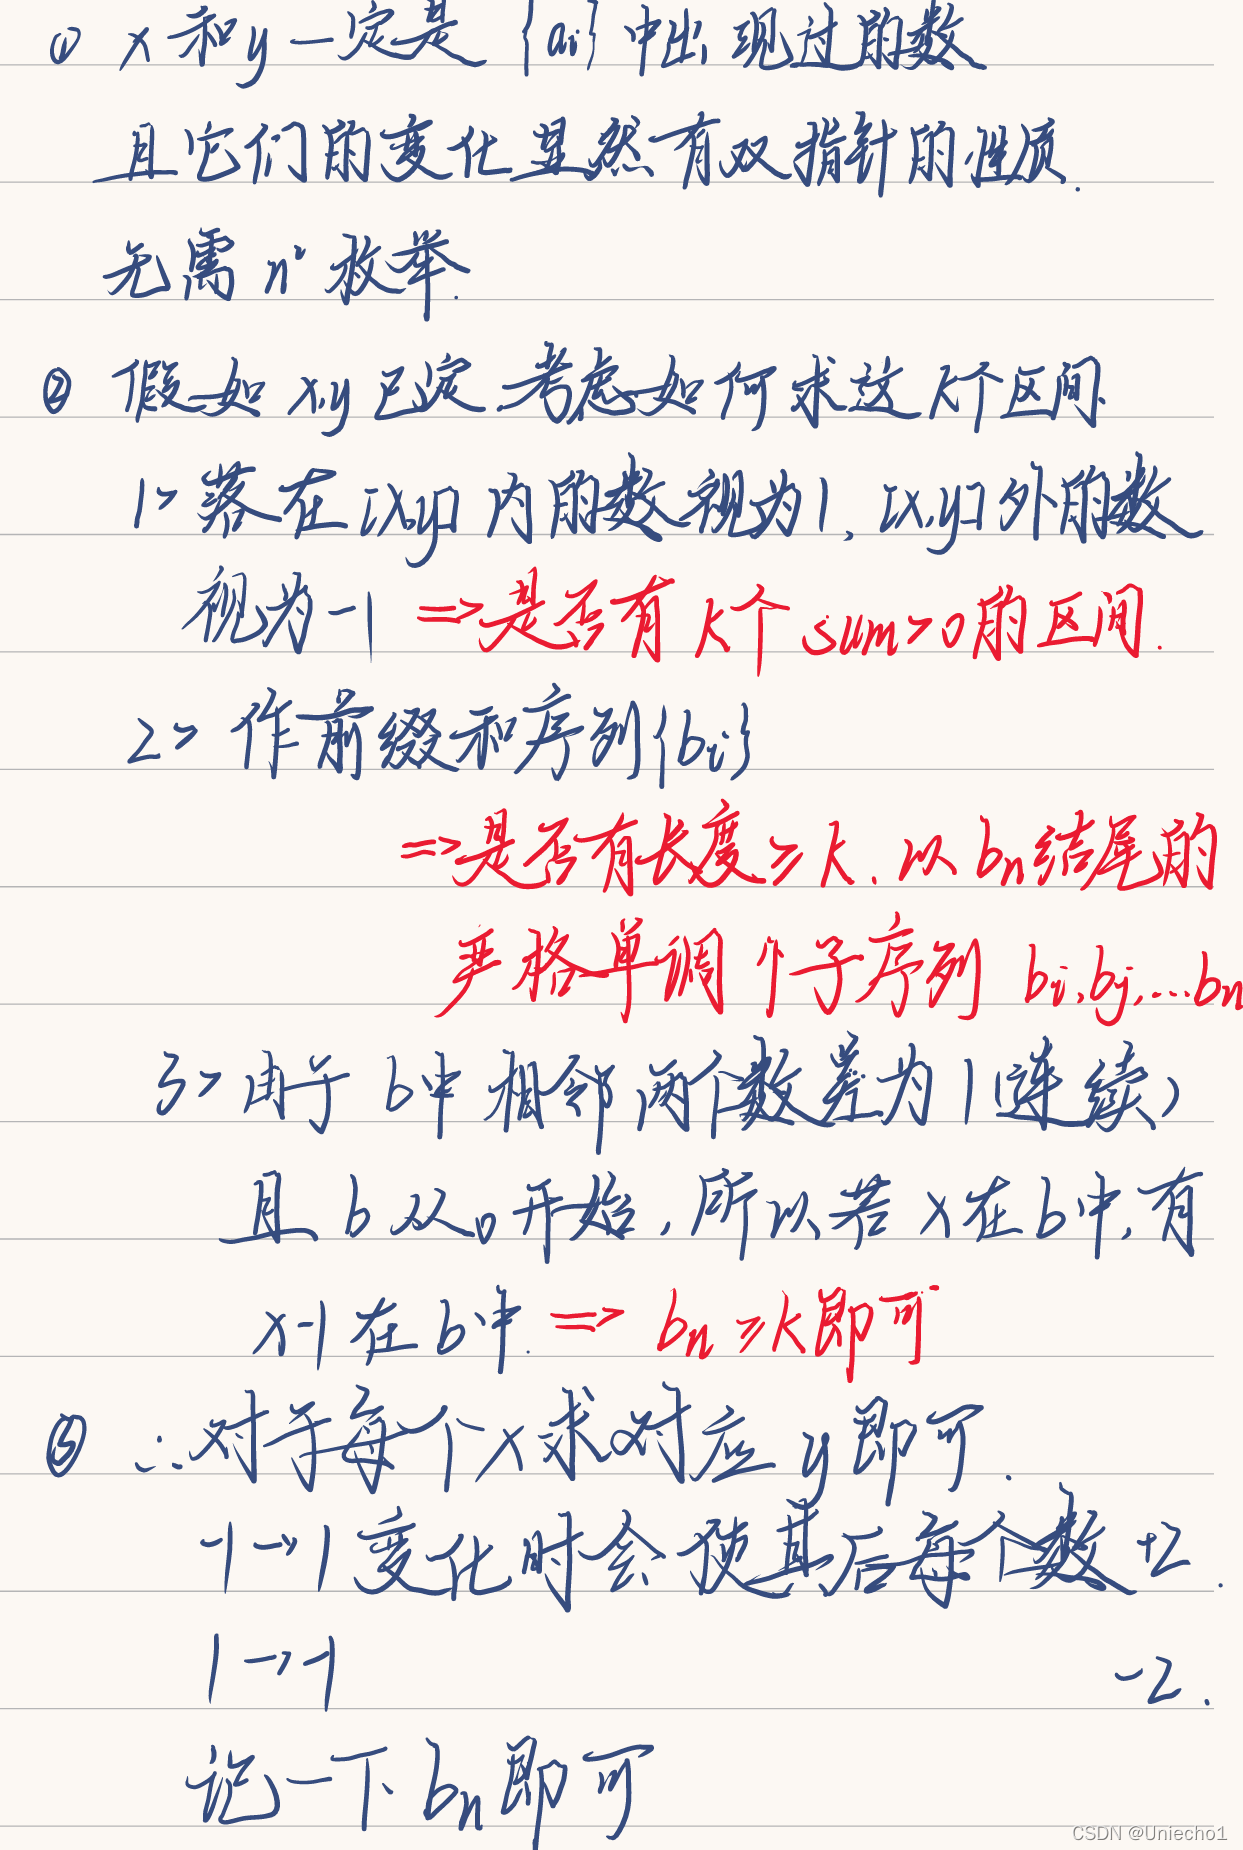 ① x和y一定是{ai}中出现过的数
且它们的变化显然有双指针的性质.
无需n²枚举.
② 假如x,y已定.考虑如何求这k个区间.
1> 落在[x,y]内的数视为1,[x,y]外的数
视为-1 => 是否有k个sum>0的区间.
2> 作前缀和序列{bi}
=> 是否有长度≥k.以bn结尾的
严格单调个子序列 bi,bj,...bn
3> 由于b中相邻两个数差为1(连续)
且b从0开始,所以若x在b中,有
x-1在b中. => bn≥k即可
③ ∴对于每个x求对应y即可.
-1→1变化时会使其后每个数+2.
1→-1 -2.
记一下bn即可
CSDN @Uniecho1